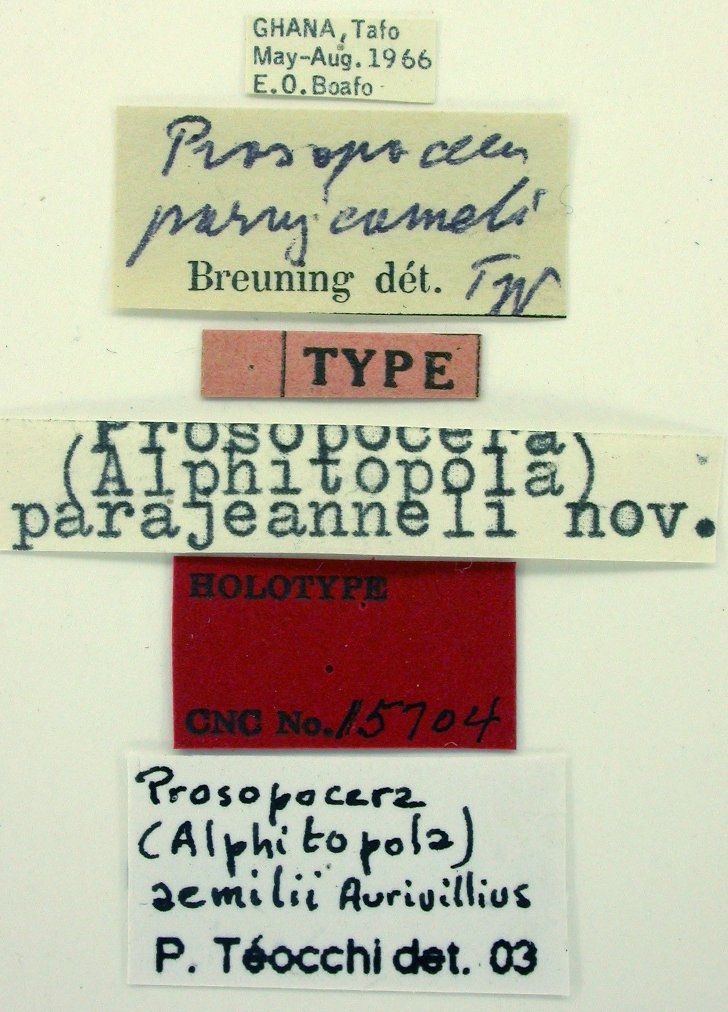 GHANA, Tafo
May-Aug. 1966
E.O. Boafo
Prosopocera
parajeanneli
Breuning dét. Typ
TYPE
Prosopocera
(Alphitopola)
parajeanneli nov.
HOLOTYPE
CNC No. 15704
Prosopocera
(Alphitopola)
aemilii Aurivillius
P. Téocchi det. 03